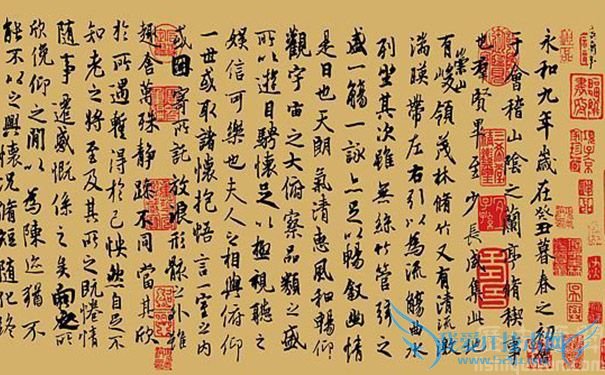 永和九年歲在癸丑暮春之初會
于會稽山陰之蘭亭脩禊事
也羣賢畢至少長咸集此地
有崇山峻領茂林脩竹又有清流激
湍暎帶左右引以為流觴曲水
列坐其次雖無絲竹管弦之
盛一觴一詠亦足以暢敘幽情
是日也天朗氣清惠風和暢仰
觀宇宙之大俯察品類之盛
所以遊目騁懷足以極視聽之
娛信可樂也夫人之相與俯仰
一世或取諸懷抱悟言一室之內
或因寄所託放浪形骸之外雖
趣舍萬殊靜躁不同當其欣
於所遇暫得於己怏然自足不
知老之將至及其所之既惓情
隨事遷感慨係之矣向之所
欣俛仰之閒以為陳迹猶不
能不以之興懷況脩短隨化終